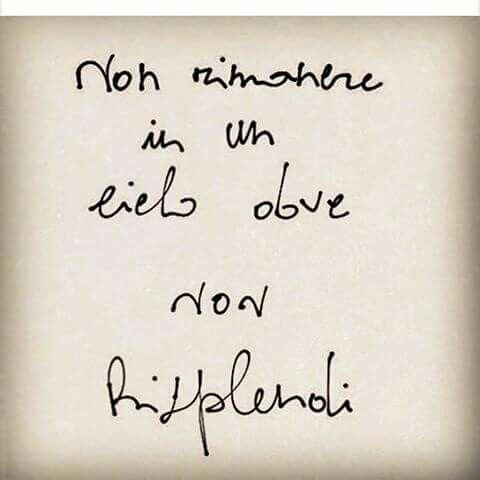 Non rimanere
in un
cielo dove
non
Risplendi